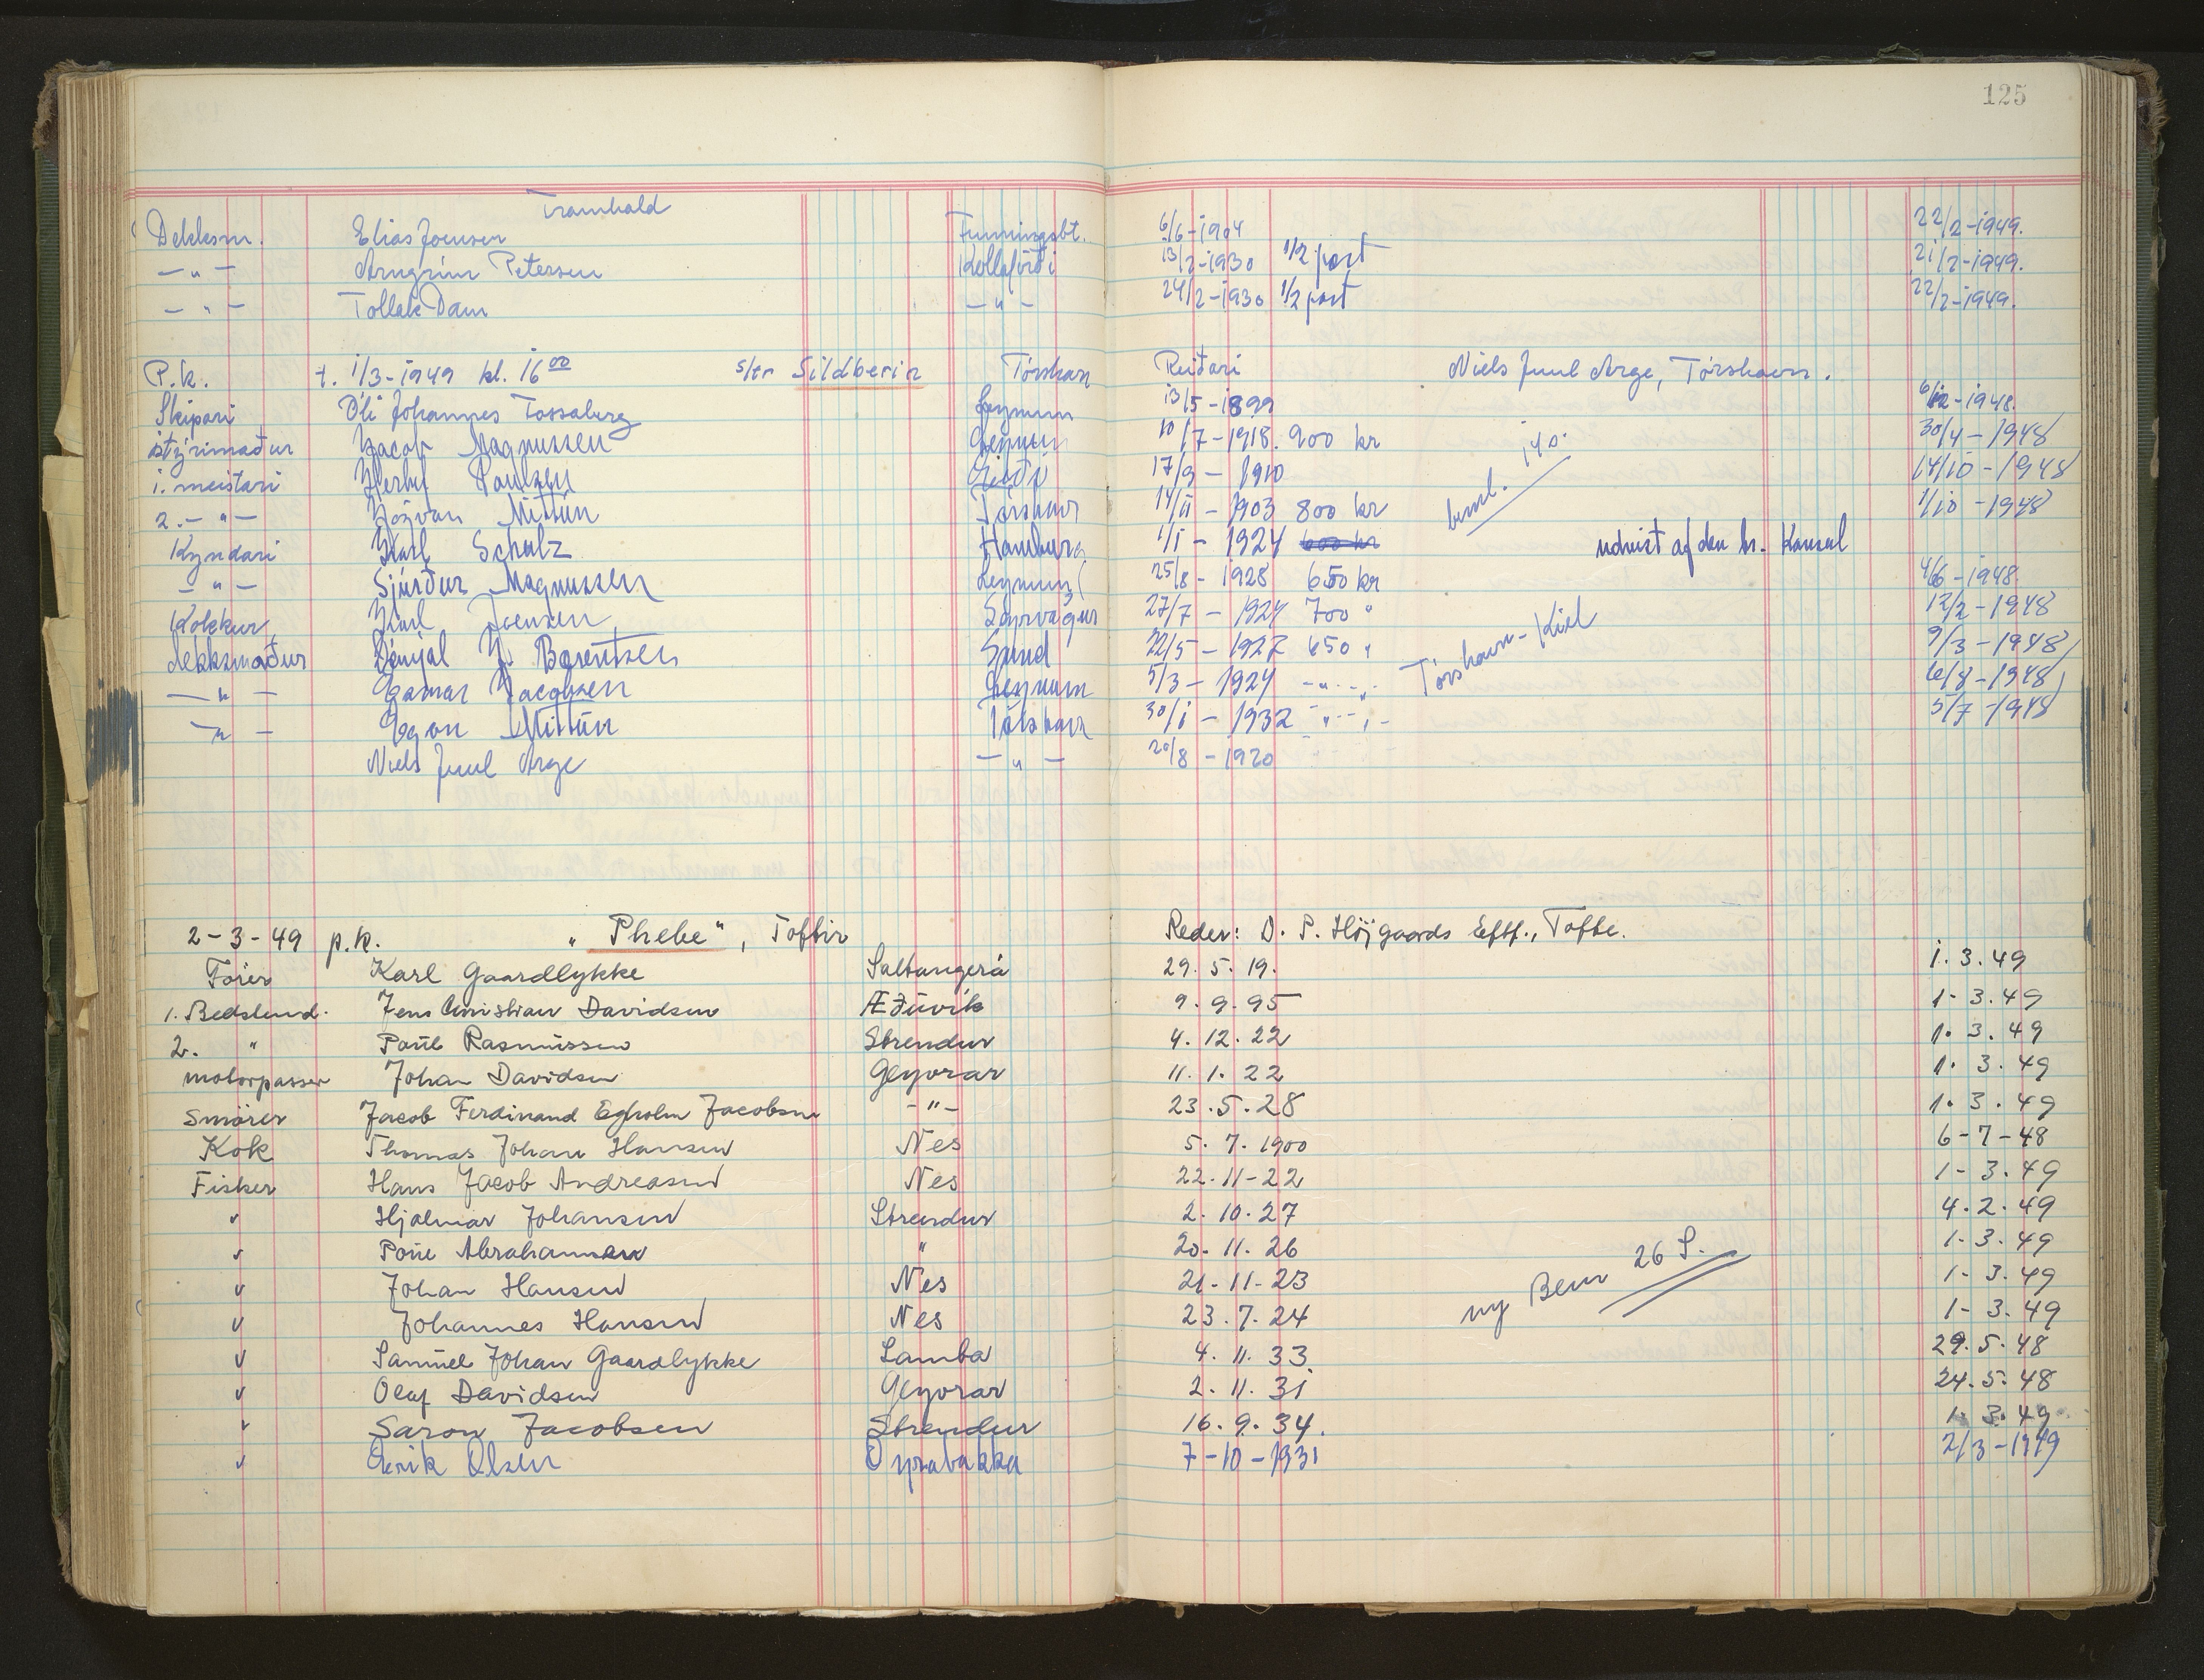 125
Framhald
Dekksm. Elias Joensen Funningsbt. 6/6-1904 22/2-1949.
—"— Arngrim Petersen Kollafirði 13/2-1930 1/2 part 21/2-1949.
—"— Tollak Dam —"— 24/2-1930 1/2 part 22/2-1949.
P.k. t. 1/3-1949 kl. 16 00 s/tr Sildberin Tórshavn Reiðari Niels Juul Arge, Tórshavn.
Skipari Óli Johannes Tossaberg Leynum 13/5-1899 6/12-1948.
stýrimaður Jacob Magnussen Leynum 10/7-1918. 900 kr 30/4-1948
1. meistari Herluf Poulsen Eiði 17/9-1910 14/10-1948
2. —"— Mittún Tórshavn 14/11-1903 800 kr 1/10-1948
Kyndari Karl Schulz Hamburg 1/1-1924 600 kr udvist af den br. Konsul
—"— Sjúrður Magnussen Leynum 25/8-1928 650 kr 4/6-1948
Kokkur Karl Joensen Sørvágur 27/7-1924 700 " 12/2-1948
dekksmaður Danjal J. Berentsen Sund 22/5-1927 650 " 9/3-1948
—"— Jacobsen Leynum 5/3-1924 —"— 6/8-1948
—"— Egon Mittún Tórshavn 30/1-1932 —"— 5/7-1948
Niels Juul Arge —"— 20/8-1920
beml. 140.
Tórshavn-Kiel
2-3-49 p.k. "Phebe", Toftir Reder: D. P. Höjgaards Eftf., Tofte.
Förer Karl Gaardlykke Saltangerá 29.5.19. 1.3.49
1. Bedstemd. Jens Christian Davidsen Æðuvík 9.9.95 1-3.49
2. " Poul Rasmussen Strendur 4.12.22 1.3.49
motorpasser Johan Davidsen Glyvrar 11.1.22 1.3.49
Smörer Jacob Ferdinand Egholm Jacobsen -"- 23.5.28 1.3.49
Kok Thomas Johan Hansen Nes 5.7.1900 6-7-48
Fisker Hans Jacob Andreasen Nes 22.11-22 1-3.49
v Hjalmar Johansen Strendur 2.10.27 4.2.49
v Poul Abrahamsen " 20.11.26 1-3.49
v Johan Hansen Nes 21-11-23 1-3.49
v Johannes Hansen Nes 23.7.24 1-3.49
v Samúel Johan Gaardlykke Lamba 4.11.33 29.5.48
v Olaf Davidsen Glyvrar 2.11.31 24.5.48
v Saron Jacobsen Strendur 16.9.34. 1.3.49
v Eirik Olsen Oyrabakka 7-10-1931 2/3-1949
ny Bem 26 S.